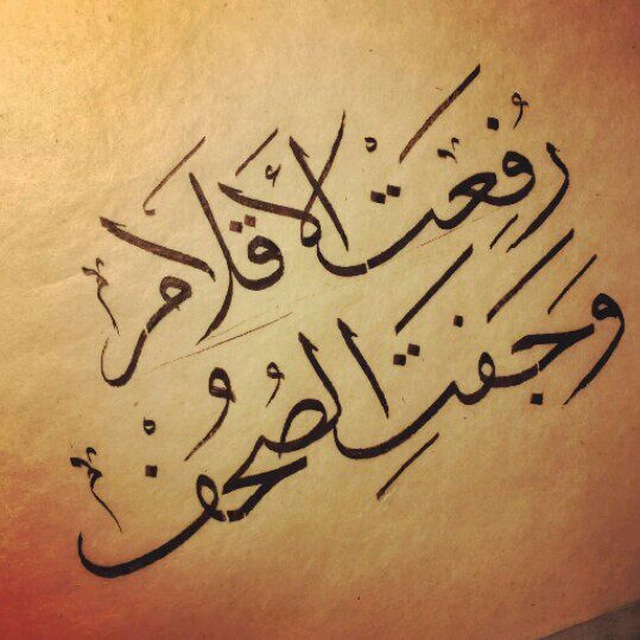 رُفِعَتْ الأَقلَامُ
وَجَفَتِ الصُحُفْ